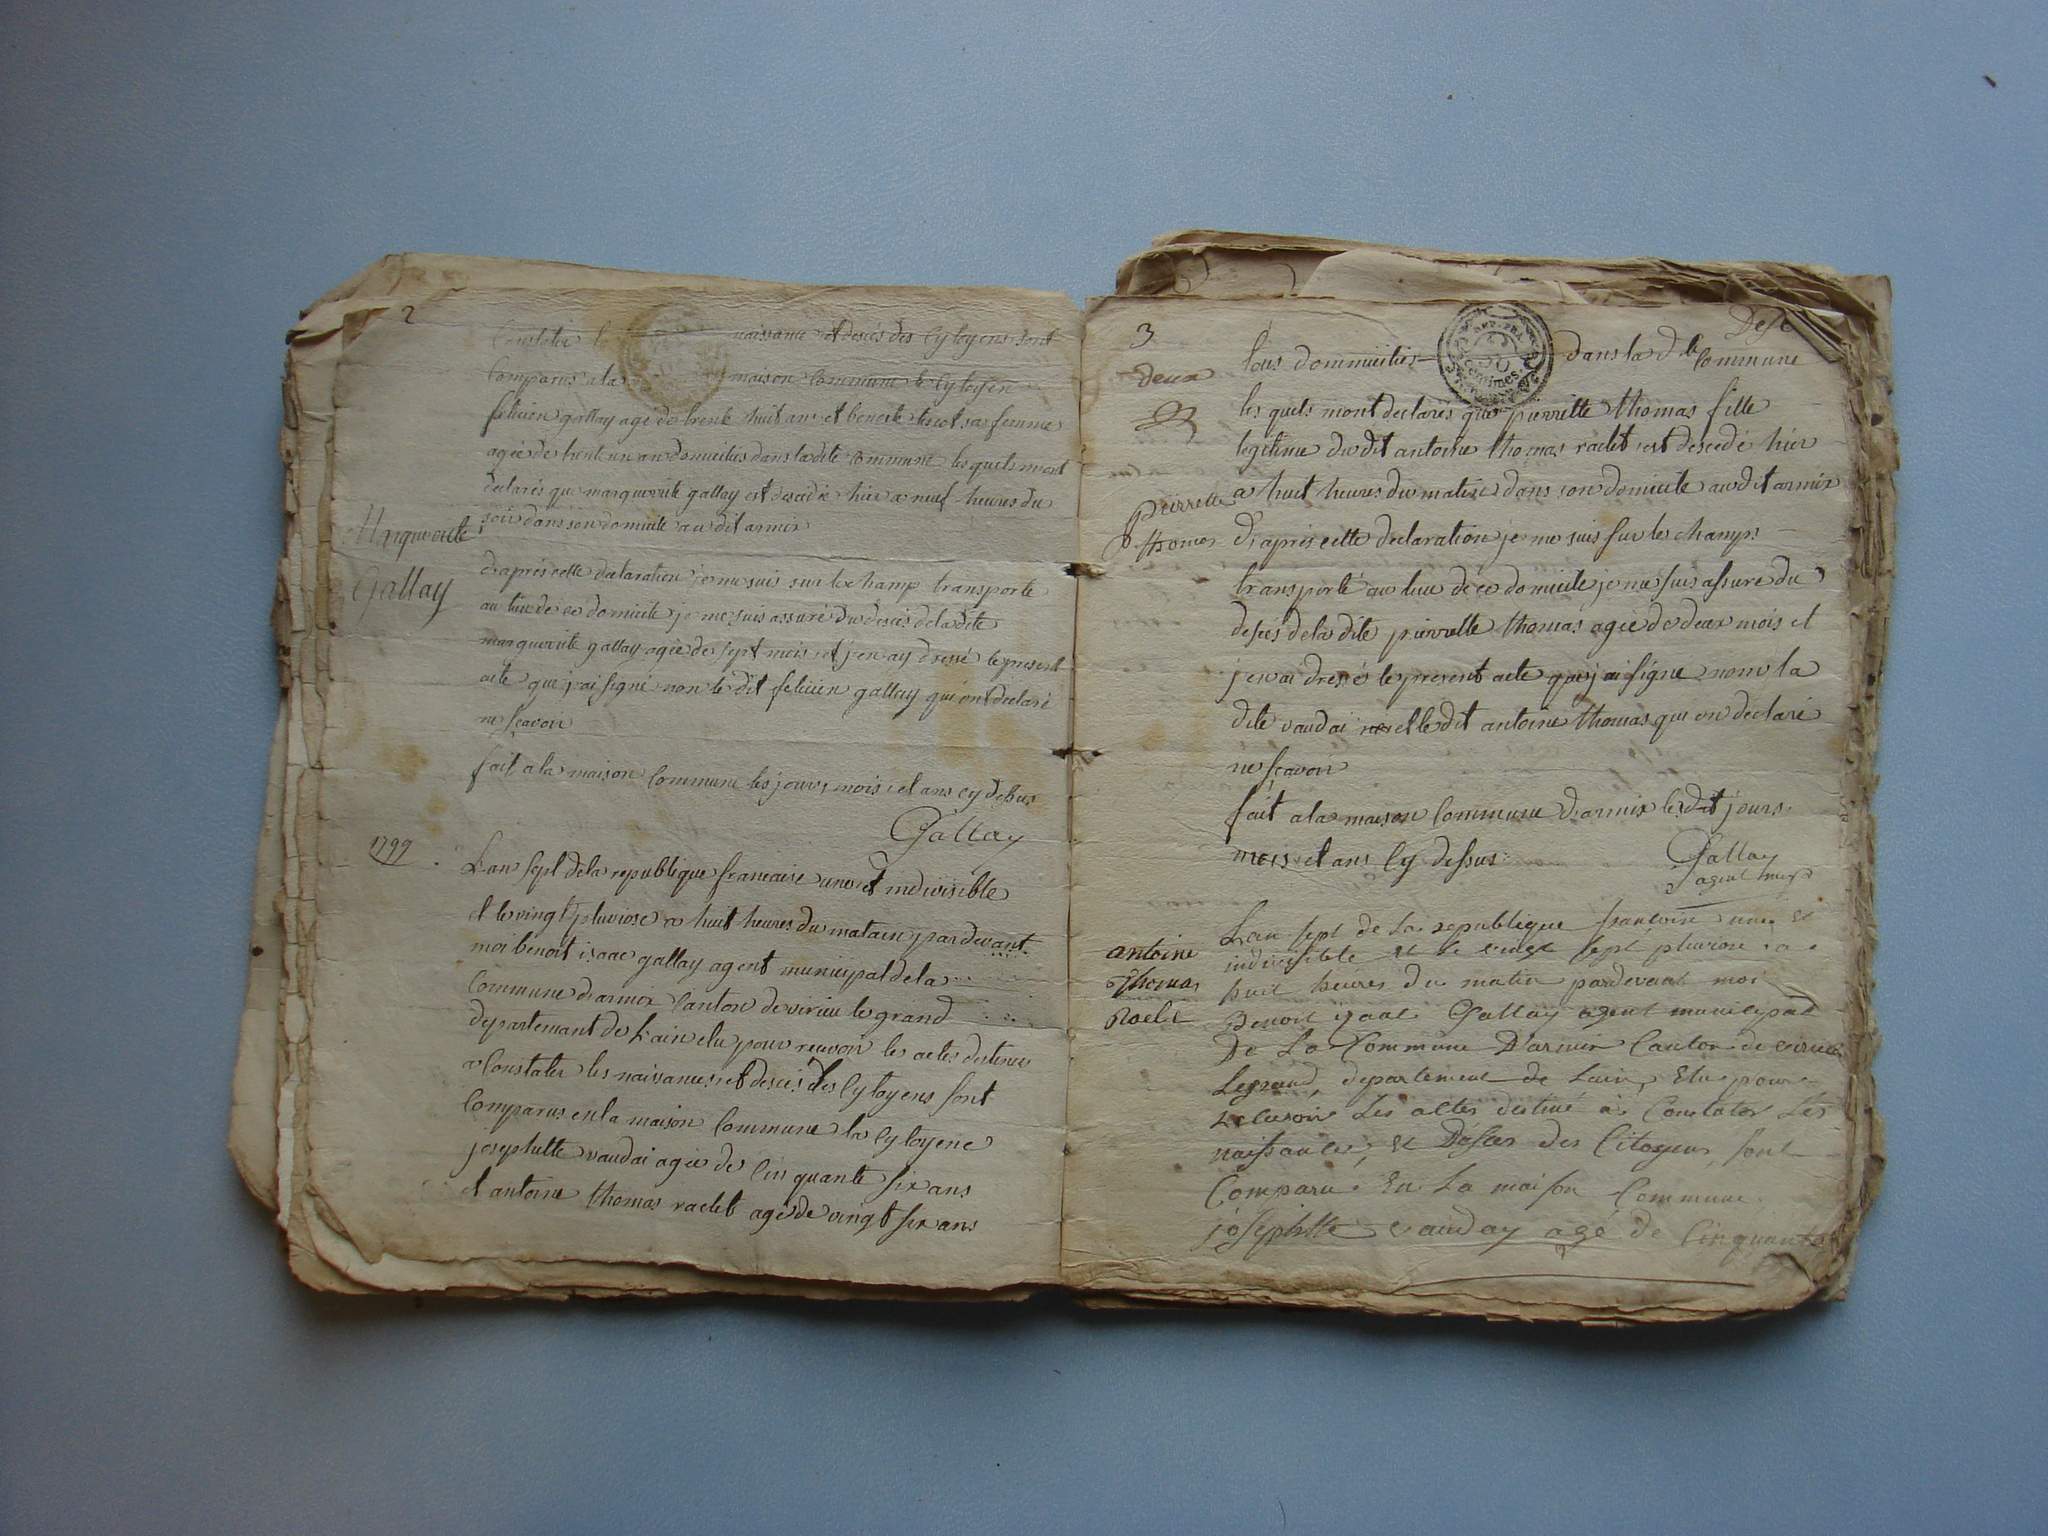 2
Constater le naissance et descès des Cytoyens sont
Comparus a la maison Commune le Cytoyen
felicien gallay agé de trente huit ans et benoite sa femme
agée de trent un an domicilies dans la dite Commune les quels mont
declarés que marguerite gallay est descedée hier a neuf heures du
soir dans son domicile au dit armix
Marguerite
Gallay
d'aprés cette declaration je me suis sur le champ transporte
au lieu de ce domicile je me suis assuré du descés de la dite
marguerite gallay agée de sept mois et j'en ay dressé le present
acte que j'ai signé non le dit felicien gallay qui ont declaré
ne sçavoir
fait a la maison Commune les jours, mois et ans cy dessus
Gallay
1799
L'an sept de la republique francaise une et indivisible
et le vingt pluviose a huit heures du matain par devant
moi benoit isaac gallay agent municipal de la
Commune d'armix Canton de virieu le grand
departemant de L'ain elu pour recevoir les actes destines
a Constater les naissances et descés des Cytoyens sont
Comparus en la maison Commune la Cytoyene
josephette vaudai agée de Cinquante six ans
et antoine thomas raclet agé de vingt six ans
3
Dese
deux
tous dommicilies dans la d.te Commune
REP. FRA.
Centimes.
les quels mont declarés que pierrette thomas fille
legitime du dit antoine thomas raclet est descedé hier
a huit heures du matin dans son domicile au dit armix
pierrette
thomas
D'aprés cette declaration je me suis sur le champs
transporté au lieu de ce domicile je me suis assuré du
descés de la dite pierrette thomas agée de deux mois et
j'en ai dressés le present acte que j'ai signe nom la
dite vaudai et le dit antoine thomas qui on declaré
ne sçavoir
fait a la maison Commune d'armix les dit jours
mois et ans Cy dessus
Gallay
agent
antoine
thomas
Raclet
L'an sept de La republique francoise une et
indivisible et le vingt sept pluviose a
huit heures du matin pardevant moi
Benoit Gallay agent municipal
De La Commune D'armix Canton de virieu
Legrand, departement de Lain, Elu pour
recevoir Les actes destiné à Constater Les
naissances, et Désces des Citoyens, sont
Comparu En La maison Commune
josephtte vauday agé de Cinquante